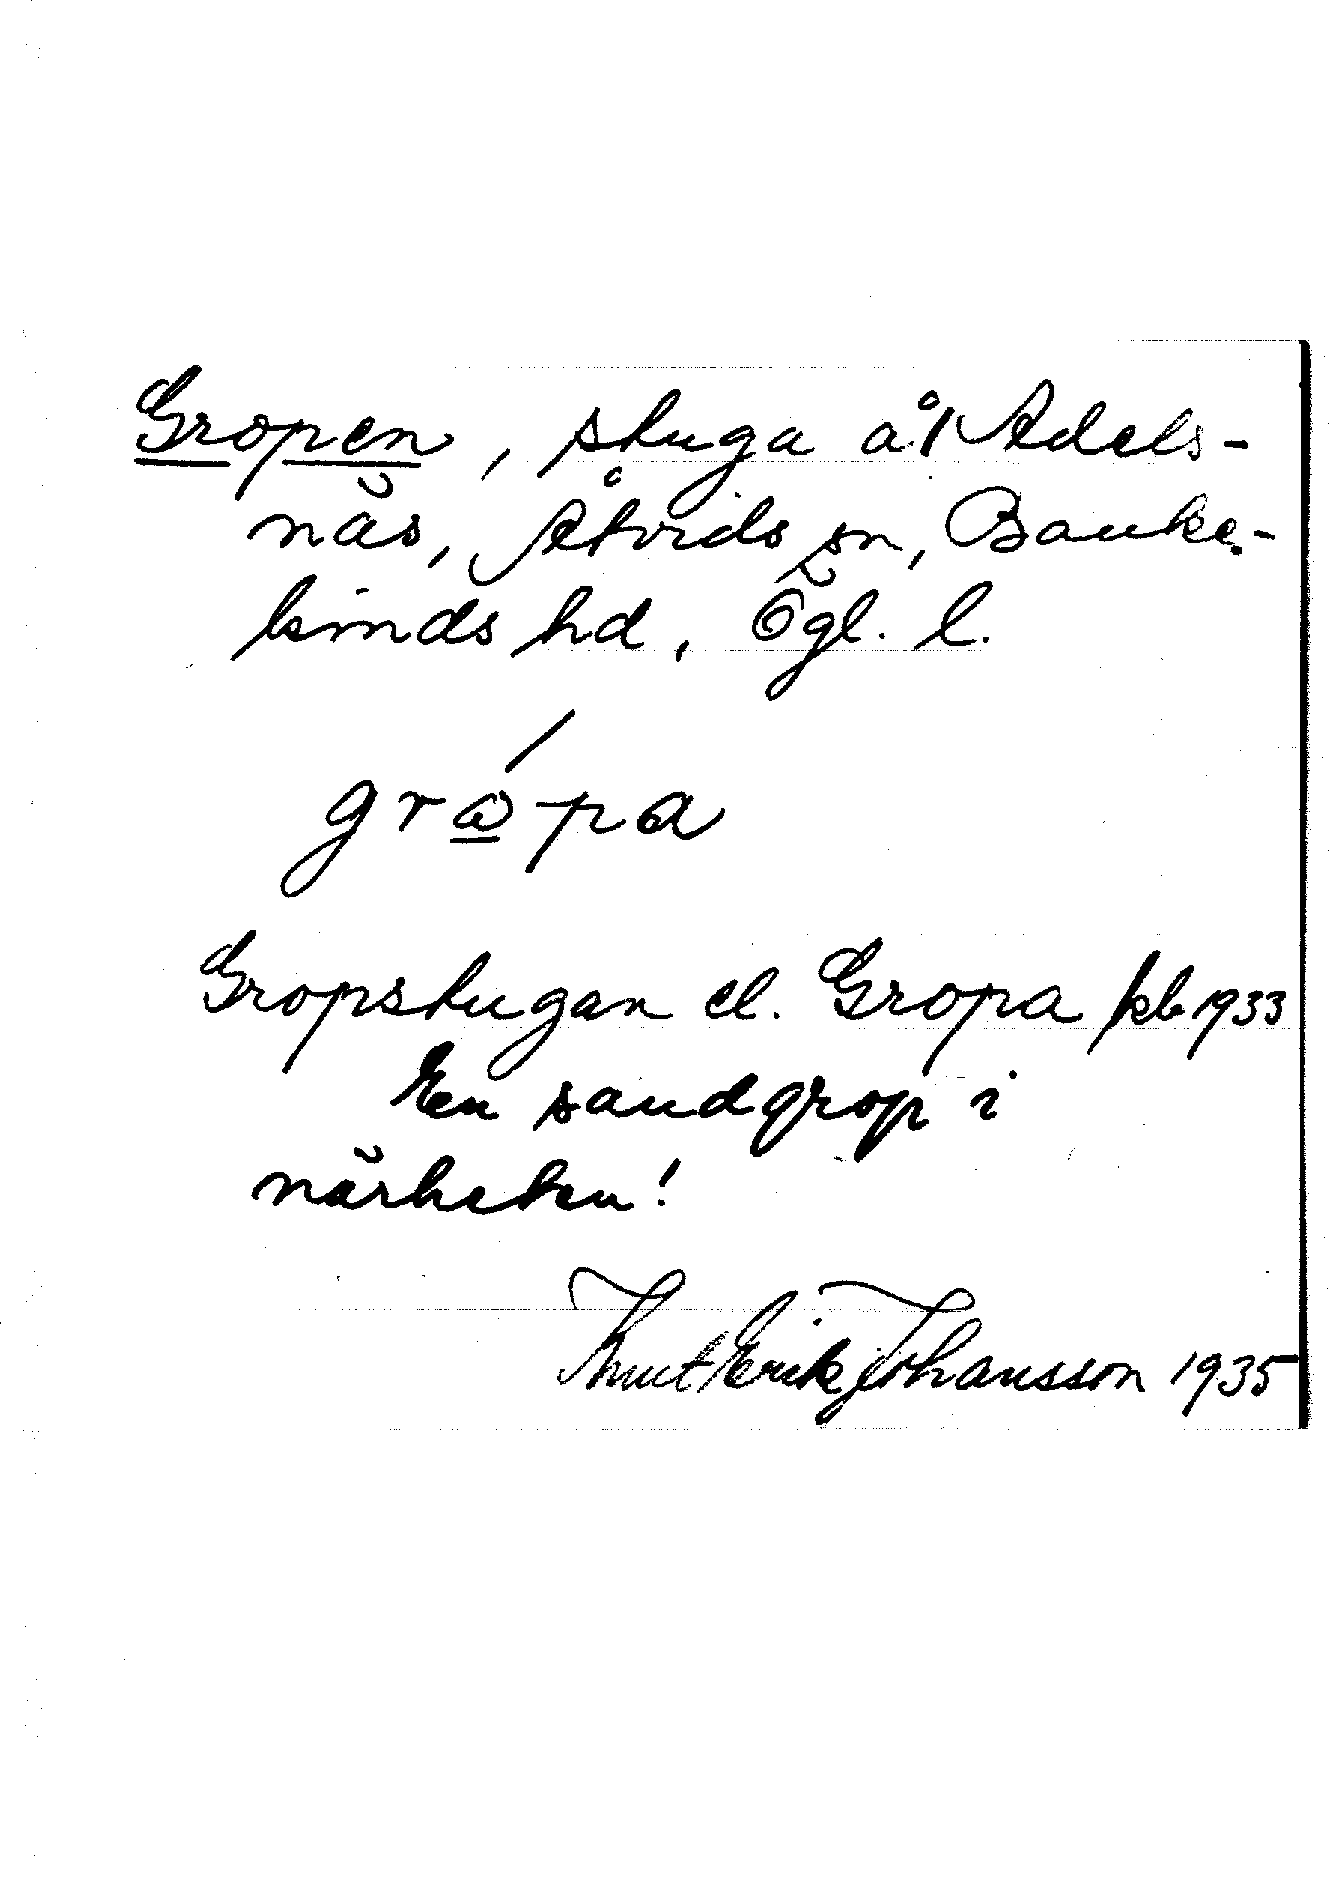 Gropen, stuga å Adels-
näs, Åtvids sn, Banke-
kinds hd, Ögl. l.
grώ̲pa
Gropstugan el. Gropa kb 1933
En sandgrop i
närheten!
Knut Erik Johansson 1935